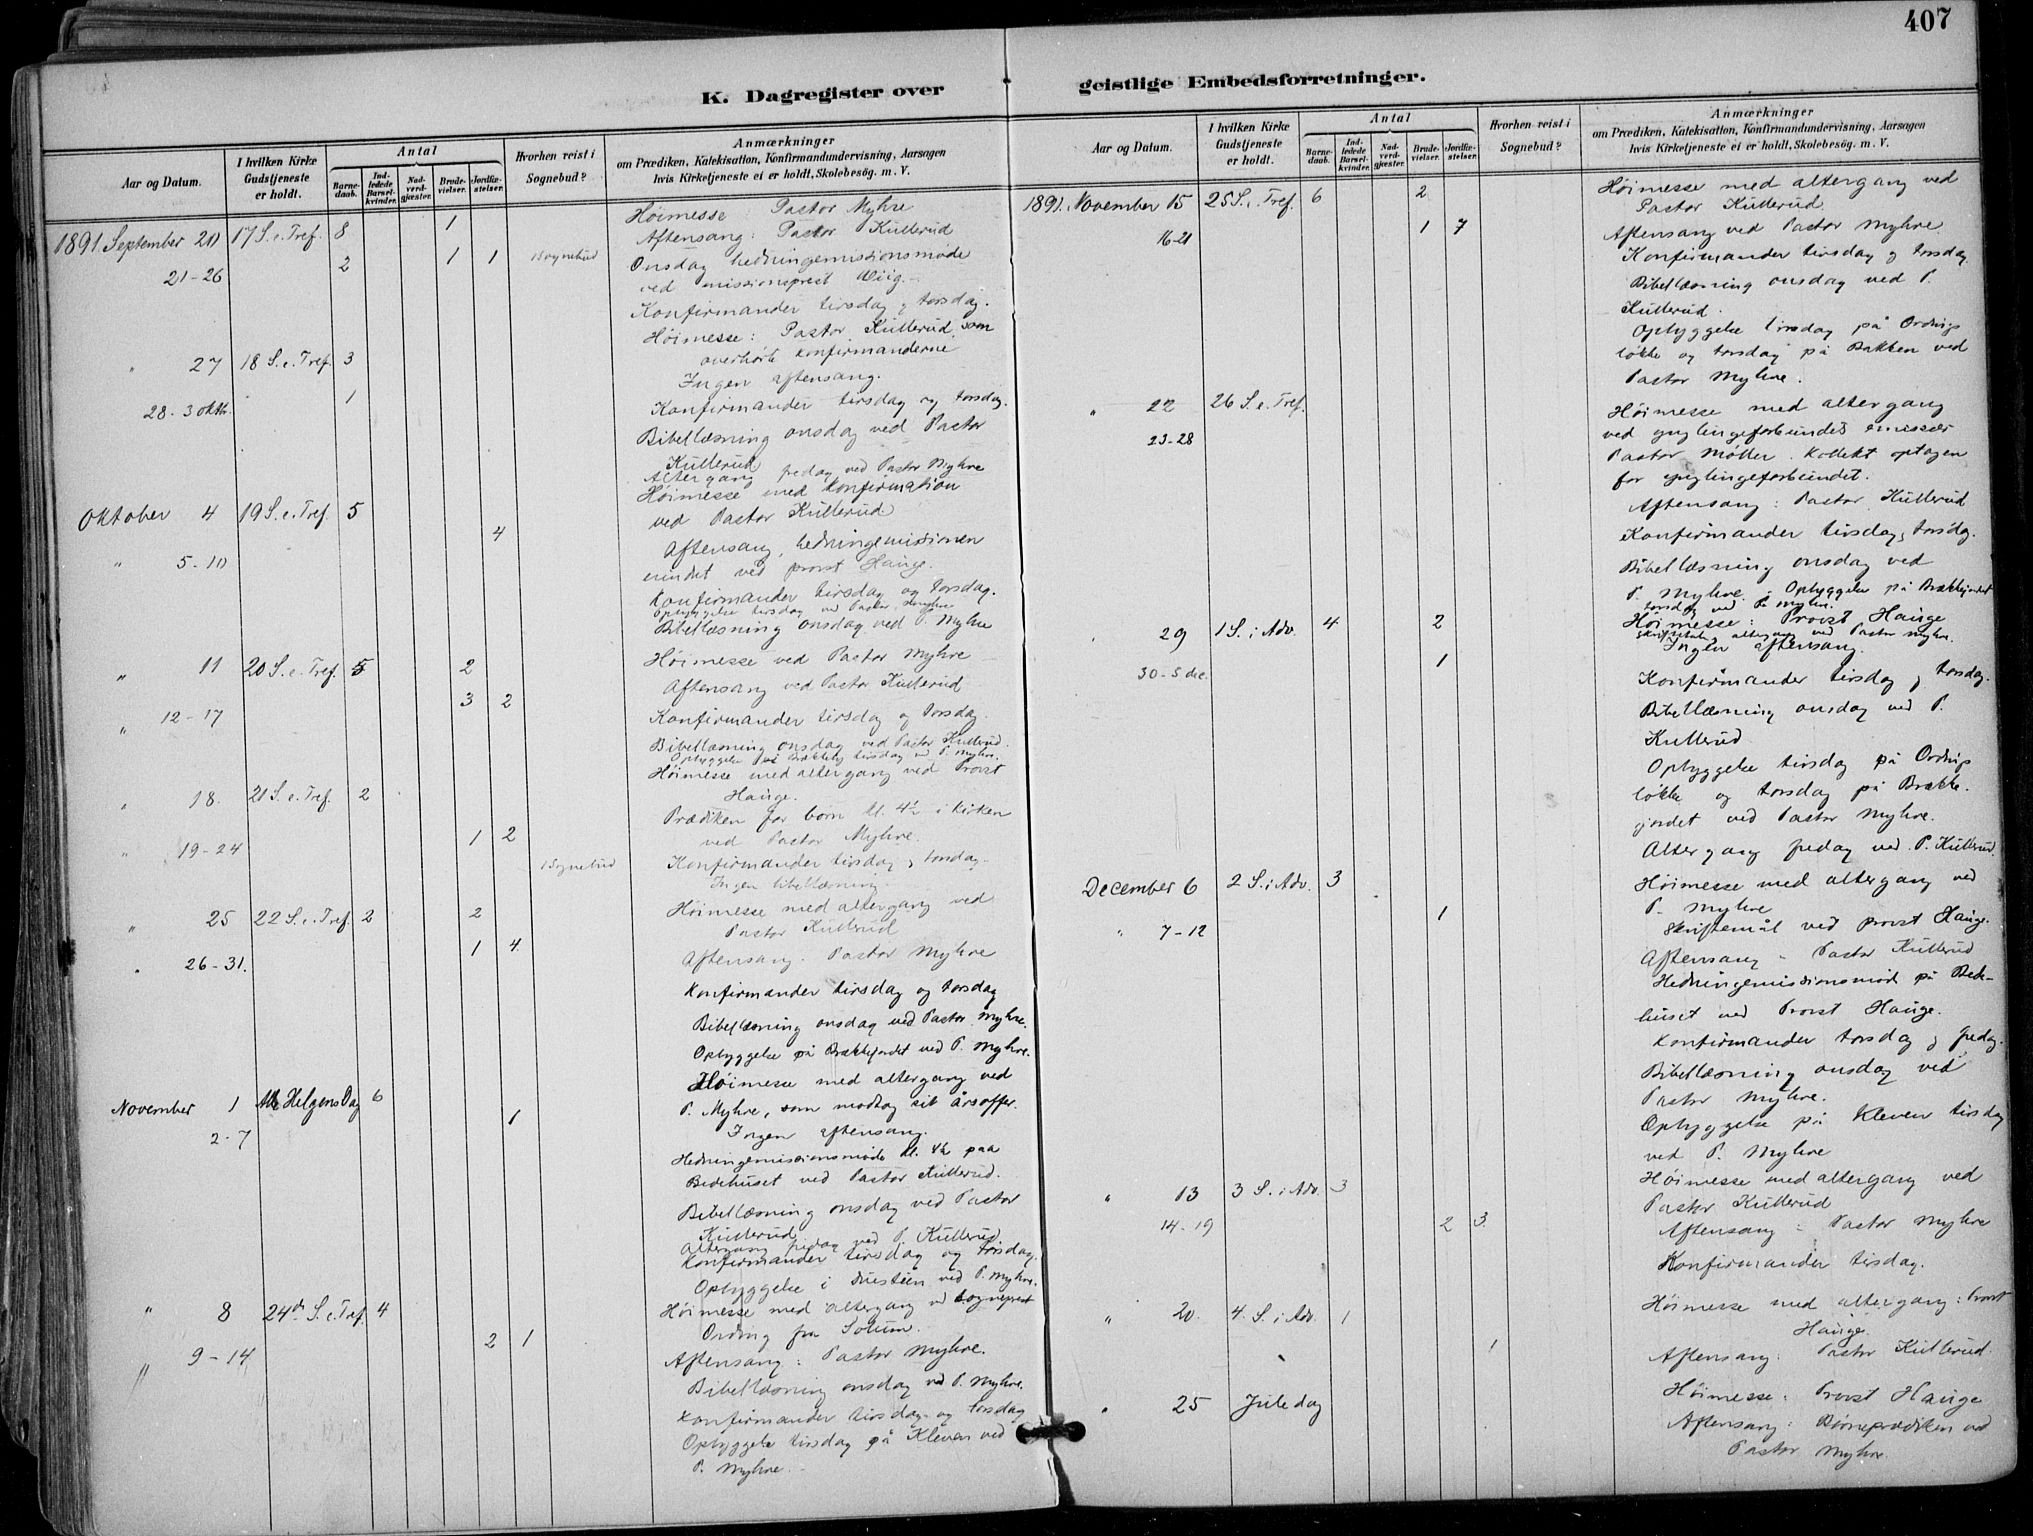 407
K. Dagregister over
Aar og Datum.
I hvilken Kirke Gudstjeneste er holdt.
Antal
Barnedaab.
Indledede Barselkvinder.
Nadverdgjæster.
Brudevielser.
Jordfæstelser.
Hvorhen reist i Sognebud?
Anmærkninger
om Prædiken, Katekisation, Konfirmandundervisning, Aarsagen
hvis Kirketjeneste ei er holdt, Skolebesøg. m. V.
1891. September 20 17 S. e. Tref. 8 1 Høimesse: Pastor Myhre
Aftensang: Pastor Kullerud
21-26 2 1 1 1 Sognebud Onsdag hedningemissionsmøde
ved missionsprest Wiig.
Konfirmander tirsdag og torsdag.
" 27 18 S. e. Tref. 3 Høimesse: Pastor Kullerud, som
overhørte konfirmanderne
Ingen aftensang.
28-3 oktb. 1 Konfirmander tirsdag og torsdag.
Bibellæsning onsdag ved Pastor
Kullerud
Altergang fredag ved Pastor Myhre
Oktober 4 19 S. e. Tref. 5 Høimesse med konfirmation
ved Pastor Kullerud
4 Aftensang, hedningemissionen
" 5-10 mindet ved provst Hauge.
Konfirmander tirsdag og torsdag.
Opbyggelse tirsdag ved Pastor Myhre
Bibellæsning onsdag ved P. Myhre
" 11 20 S. e. Tref. 5 2 Høimesse ved Pastor Myhre
Aftensang ved Pastor Kullerud
" 12-17 3 2 Konfirmander tirsdag og torsdag.
Bibellæsning onsdag ved Pastor Kullerud.
Opbyggelse på tirsdag ved P. Myhre.
" 18. 21 S. e. Tref. 2 Høimesse med altergang ved Provst
Hauge.
Prædiken for børn kl. 4½ i kirken
ved Pastor Myhre.
" 19-24 1 2 1 Sognebud Konfirmander tirsdag og torsdag.
Ingen bibellæsning
" 25 22 S. e. Tref. 2 2 Høimesse med altergang ved
Pastor Kullerud
" 26-31. 1 4 Aftensang. Pastor Myhre
Konfirmander tirsdag og torsdag
Bibellæsning onsdag ved Pastor Myhre.
Opbyggelse på Brækkejordet ved P. Myhre.
November 1 Alle Helgens Dag 6 Høimesse med altergang ved
P. Myhre, som modtog sit årsoffer.
2-7 1 Ingen aftensang.
Hedningemissionsmøde kl. 4½ paa
Bedehuset ved Pastor Kullerud.
Bibellæsning onsdag ved Pastor
Kullerud
Altergang fredag ved P. Kullerud
Konfirmander tirsdag og torsdag.
Opbyggelse i ved P. Myhre.
" 8 24de S. e. Tref. 4 Høimesse med altergang ved sogneprest
Ording fra Solum.
" 9-14 2 1 Aftensang: Pastor Myhre.
Bibellæsning onsdag ved P. Myhre.
Konfirmander tirsdag og torsdag
Opbyggelse tirsdag på Kleven ved
P. Myhre.
geistlige Embedsforretninger.
Aar og Datum.
I hvilken Kirke Gudstjeneste er holdt.
Antal
Barnedaab.
Indledede Barselkvinder.
Nadverdgjæster.
Brudevielser.
Jordfæstelser.
Hvorhen reist i Sognebud?
Anmærkninger
om Prædiken, Katekisation, Konfirmandundervisning, Aarsagen
hvis Kirketjeneste ei er holdt, Skolebesøg. m. V.
1891. November 15 25 S. e. Tref. 6 2 Høimesse med altergang ved
Pastor Kullerud
16-21 1 7 Aftensang ved Pastor Myhre.
Konfirmander tirsdag og torsdag.
Bibellæsning onsdag ved P.
Kullerud.
Opbyggelse tirsdag på Ordings
løkke og torsdag på Bakken ved
Pastor Myhre.
" 22 26 S. e. Tref. Høimesse med altergang
23-28 ved ynglingeforbundets emissær
Pastor Møller. Kollekt optagen
for ynglingeforbundet.
Aftensang: Pastor Kullerud
Konfirmander tirsdag, torsdag.
Bibellæsning onsdag ved
P. Myhre. Opbyggelse på Brækkejordet
torsdag ved P. Myhre.
" 29 1 S. i Adv. 4 2 Høimesse: Provst Hauge
altergang ved Pastor Myhre.
Ingen aftensang.
30-5 dec. 1 Konfirmander tirsdag og torsdag.
Bibellæsning onsdag ved P.
Kullerud
Opbyggelse tirsdag på Ordings
løkke og torsdag på Brække-
jordet ved Pastor Myhre.
Altergang fredag ved P. Kullerud.
December 6 2 S. i Adv. 3 Høimesse med altergang ved
P. Myhre
" 7-12 1 Skriftemål ved provst Hauge.
Aftensang - Pastor Kullerud
Hedningemissionsmøde på Bede-
huset ved Provst Hauge.
Konfirmander torsdag og fredag.
Bibellæsning onsdag ved
Pastor Myhre.
Opbyggelse på Kleven tirsdag
ved P. Myhre
" 13 3 S. i Adv. 3 Høimesse med altergang ved
Pastor Kullerud
14-19 2 3 Aftensang: Pastor Myhre
Konfirmander tirsdag.
" 20. 4. S. i Adv. 1 Høimesse med altergang: Provst
Hauge.
1 Aftensang: Pastor Kullerud.
" 25 Juledag Høimesse: Provst Hauge
Aftensang: Børneprædiken ved
Pastor Myhre.